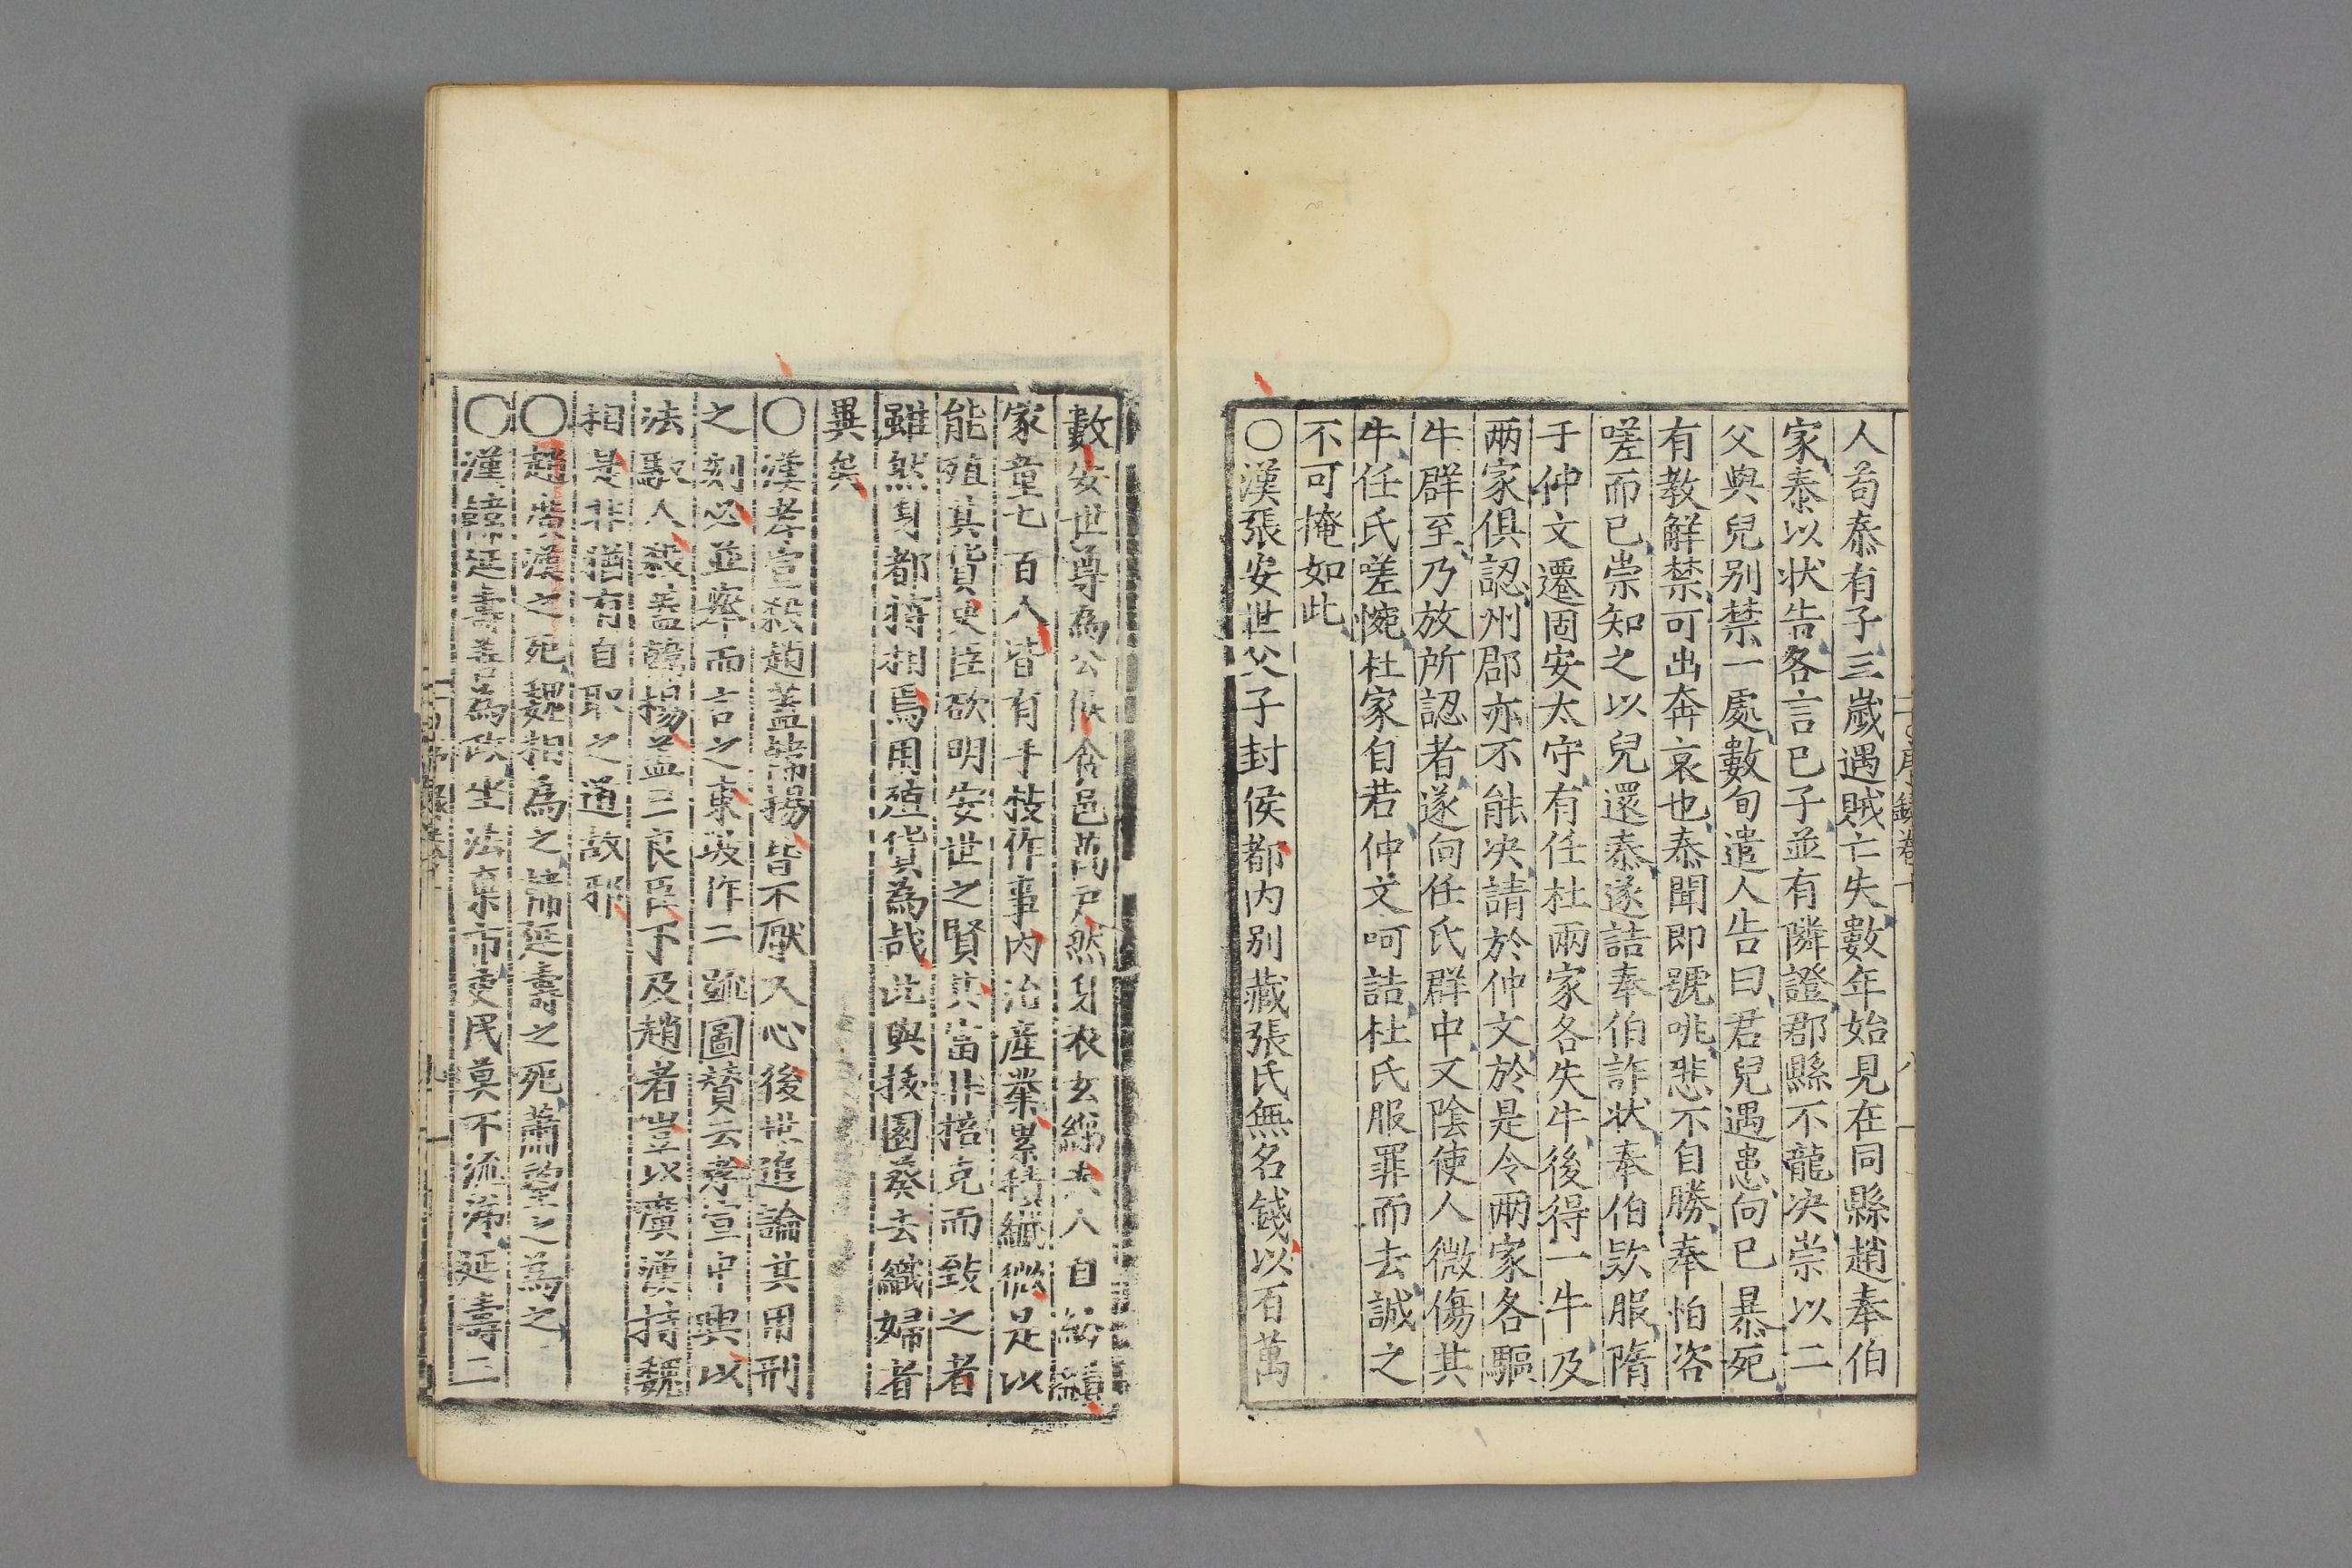 人苟泰有子三歲遇賊亡失數年始見在同縣趙奉伯
家泰以状告各言已子並有隣證郡縣不龍决崇以二
父與兒别禁一處數旬遣人告曰君兒遇患向已暴死
有教解禁可出奔哀也泰聞即號咷悲不自勝奉怕咨
嗟而已崇知之以兒還泰遂詰奉伯詐状奉伯欵服隋
于仲文遷固安太守有任杜兩家各失牛後得一牛及
兩家俱認州郡亦不能决請於仲文於是令兩家各驅
牛群至乃放所認者遂向任氏群中又陰使人微傷其
牛任氏嗟惋杜家自若仲文呵詰杜氏服罪而去誠之
不可掩如此
○漢張安世父子封侯都内别藏張氏無名錢以百萬
數安世尊為公侯食邑萬戸然身衣玄綈夫人自紡績
家童七百人皆有手技作事内治產業累積纖微是以
能殖其貨史臣欲明安世之賢其富非掊克而致之者
雖然身都將相焉用殖貨為哉此與拔園葵去織婦者
異矣
○漢孝宣殺趙蓋韓楊皆不厭人心後世追論其用刑
之刻必並舉而言之東坡作二疏圖贊云孝宣中興以
法馭人殺蓋韓楊蓋三良臣不及趙者豈以廣漢持魏
相是非猶有自取之道故邪
○趙廣漢之死魏相為之韓延壽之死蕭望之為之
○漢韓延壽善為政坐法棄市吏民莫不流涕延壽三